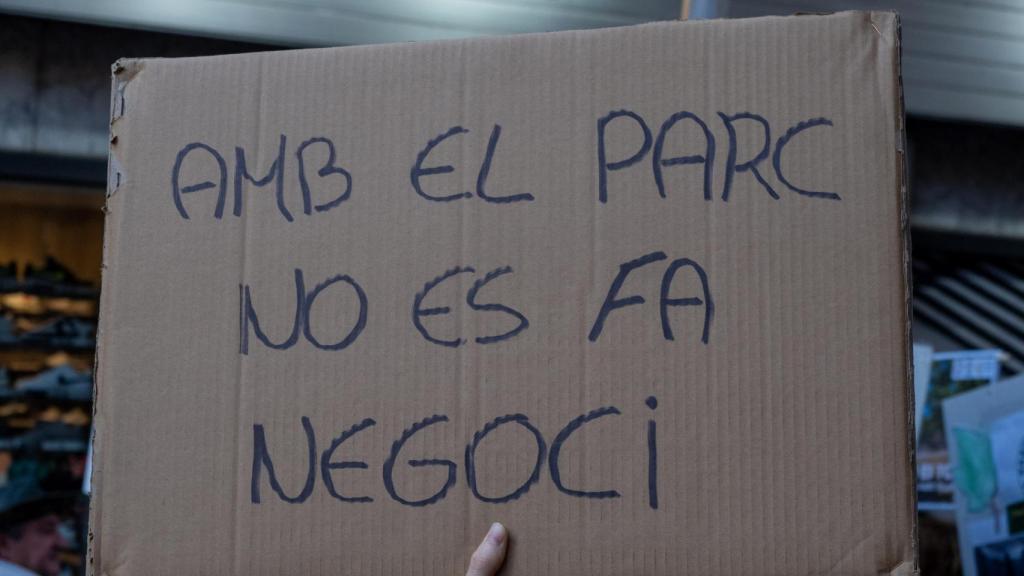 AMB EL PARC
NO ES FA
NEGOCi